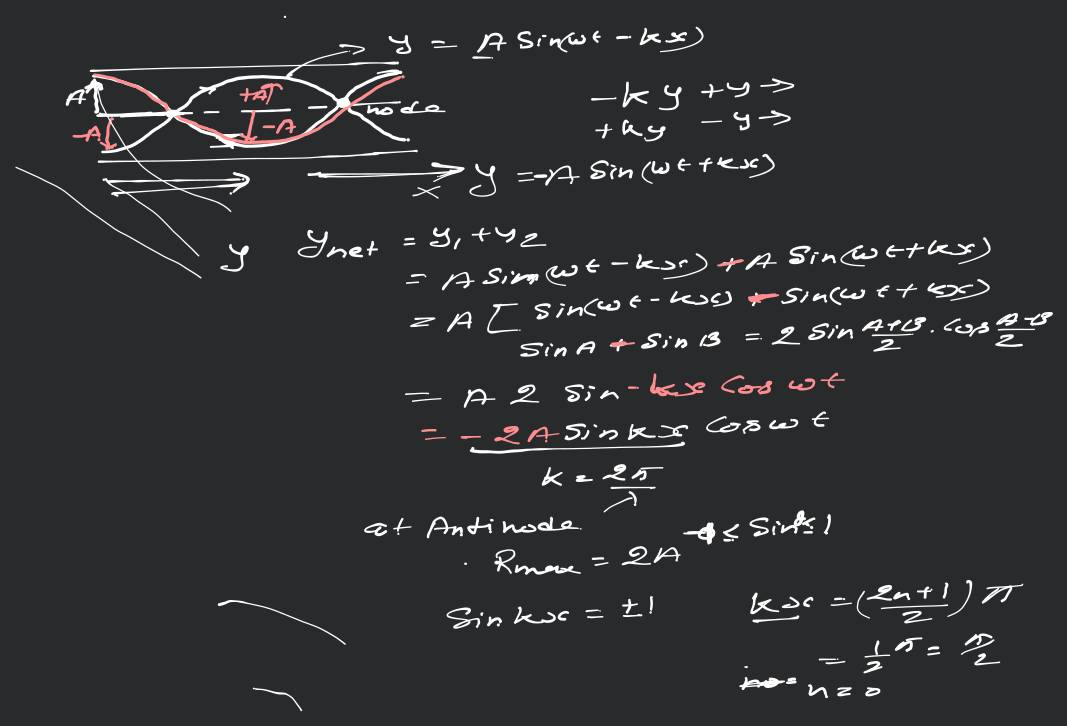 y = A Sin(ωt - kx)
A
+A
-A
-A
node
-ky +y →
+ky -y →
x
y = -A Sin(ωt + kx)
y
Ynet = y₁ + y₂
= A Sin(ωt - kx) + A Sin(ωt + kx)
= A [ Sin(ωt - kx) + Sin(ωt + kx)
Sin A + Sin B = 2 Sin A+B/2 . Cos A-B/2
= A 2 Sin -kx Cos ωt
= -2A Sin kx Cos ωt
k = 2π/λ
at Antinode
Rmax = 2A
Sin kx = ±1
kx = (2n+1/2) π
= 1/2 π = π/2
n = 0